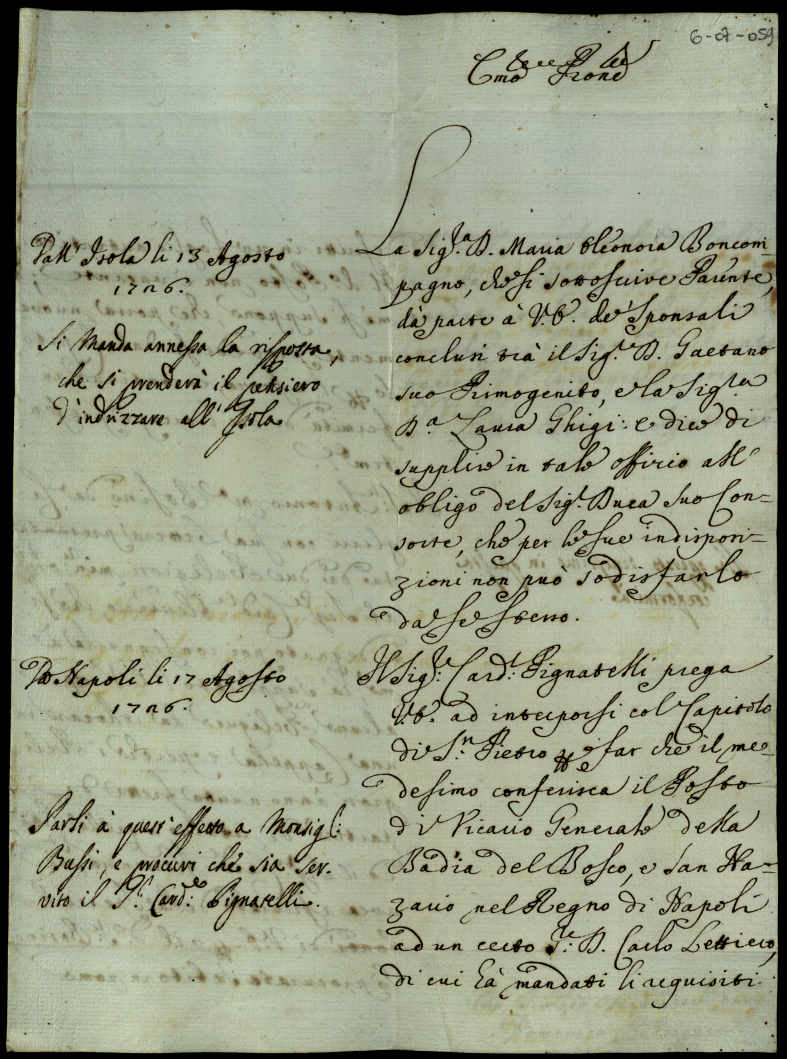 6-07-059
Em̃o e Rmo Prone
La Sig.ra D. Maria Eleonora Boncom-
pagno, che si sottoscrive Parente,
dà parte à V.E. de' Sponsali
conclusi trà il Sig.r D. Gaetano
suo Primogenito, e la Sig.ra
D.a Laura Ghigi: e dice di
supplire in tale officio all'
obligo del Sig.r Duca suo Con=
sorte, che per le sue indisposi=
zioni non può sodisfarlo
da se stesso.
Dall' Isola li 13 Agosto
1726.
Si Manda annessa la risposta,
che si prenderà il pensiero
d'indrizzare all' Isola
Il Sig.r Card.l Pignatelli prega
V.E. ad interporsi col Capitolo
di S.n Pietro per far che il me=
desimo conferisca il Posto
di Vicario Generale della
Badia del Bosco, e San Na=
zario nel Regno di Napoli
ad un certo S.r D. Carlo Lettiero,
di cui hà mandati li requisiti
Da Napoli li 17 Agosto
1726.
Parli à quest'effetto a Monsig.r
Bussi, e procuri che sia ser-
vito il S.r Card.le Pignatelli.